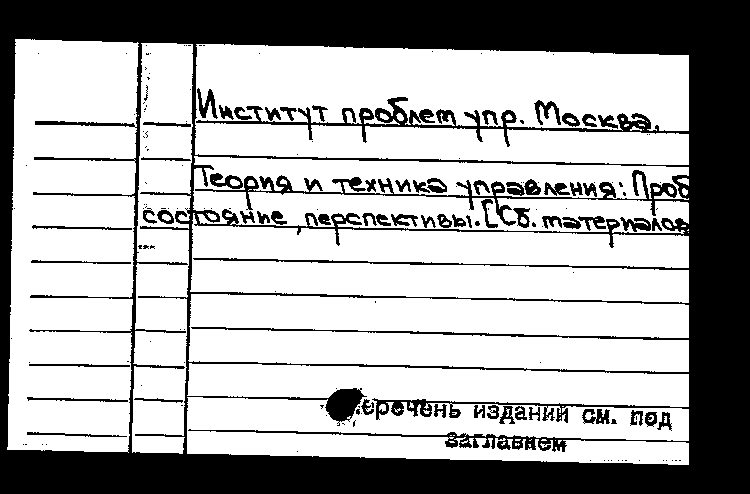 Институт проблем упр. Москва.
Теория и техника управления: Проб
состояние, перспективы. [Сб. материалов
...
еречень изданий см. под
заглавием